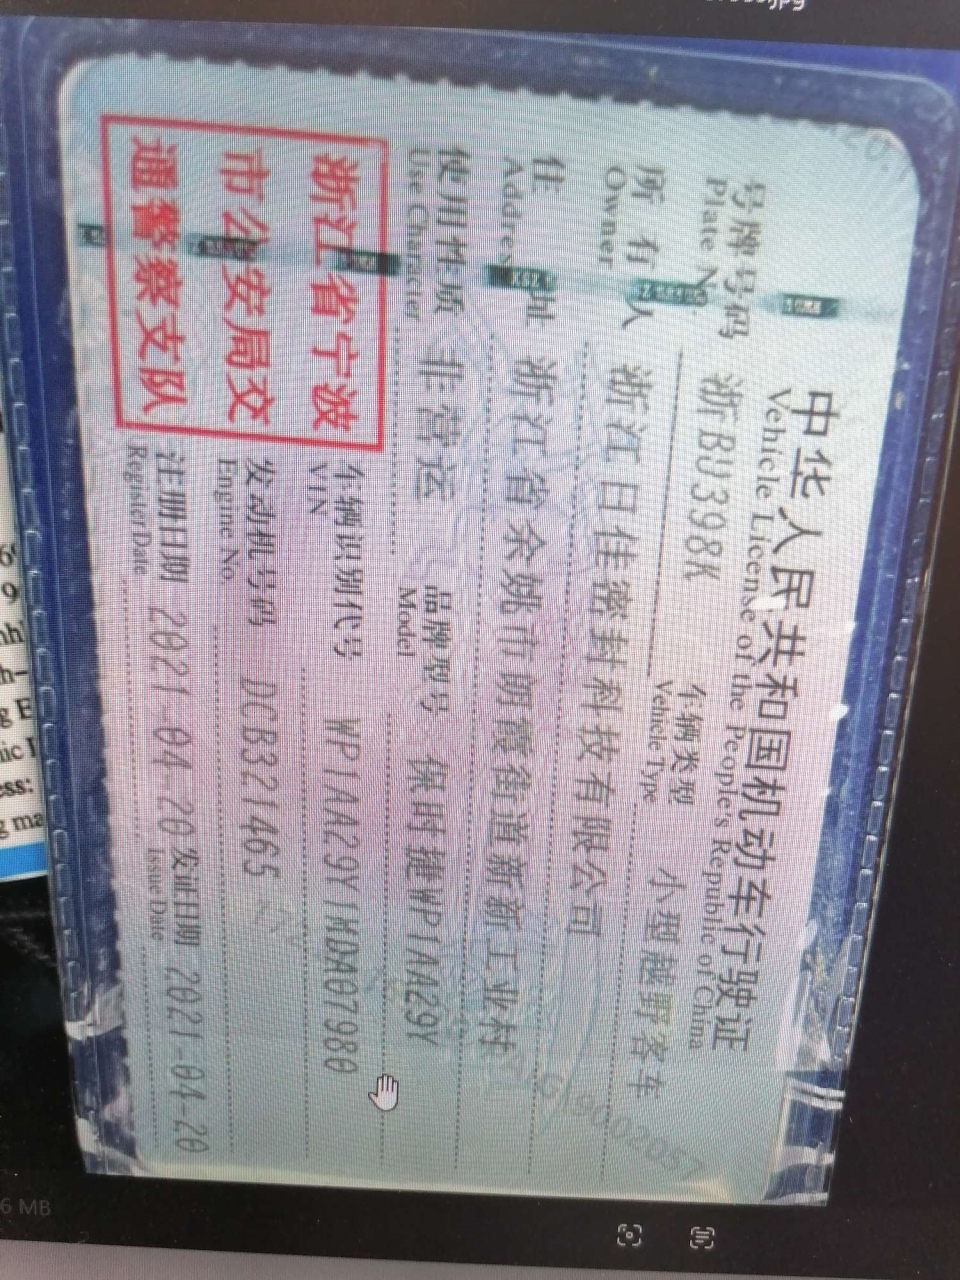 中华人民共和国机动车行驶证
Vehicle License of the People's Republic of China
号牌号码 浙BU398K 车辆类型 小型越野客车
Plate No. Vehicle Type
所有人 浙江日佳密封科技有限公司
Owner
住址 浙江省余姚市朗霞街道新新工业村
Address
使用性质 非营运 品牌型号 保时捷WP1AA29Y
Use Character Model
浙江省宁波
市公安局交
通警察支队
车辆识别代号 WP1AA29Y1MDA07980
VIN
发动机号码 DCB321465
Engine No.
注册日期 2021-04-20 发证日期 2021-04-20
Register Date Issue Date
6 MB